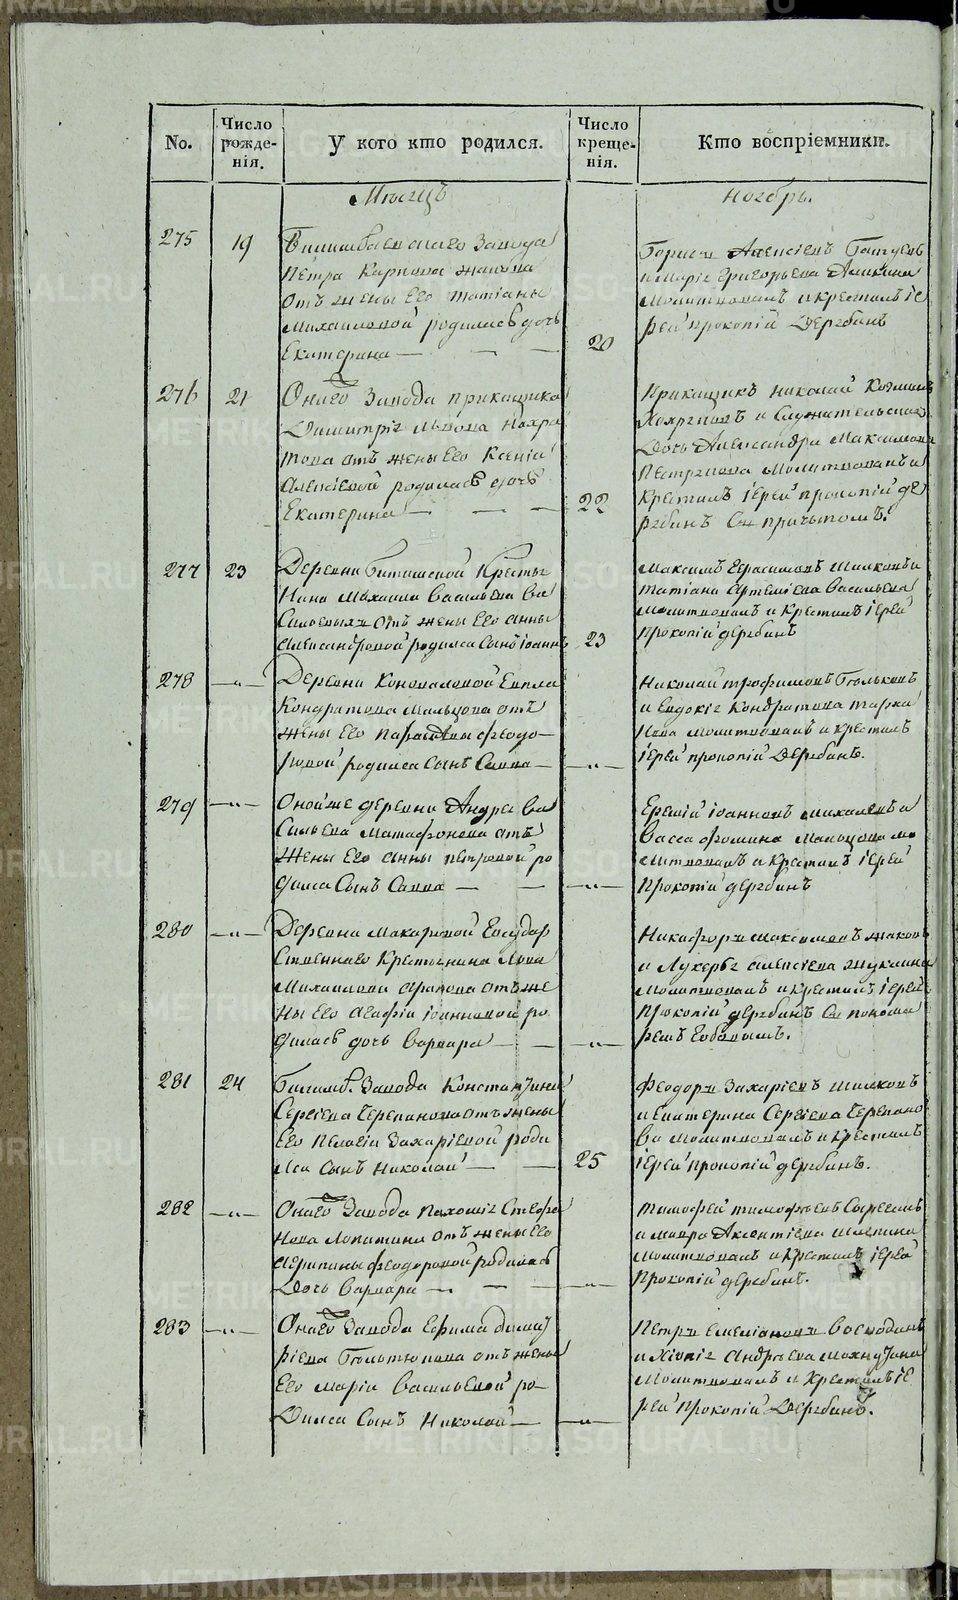 METRIKI.GASO-URAL.RU
No.
Число рожде-нія.
У кого кто родился.
Число креще-нія.
Кто воспріемники.
Мѣсяцъ
Ноябрь.
275
19
Билимбаевскаго Завода
Петра Карпова
отъ жены его Татіаны
Михаиловой родилась дочь
Екатерина —
20
Борисъ Алексіевъ
и Маріа Григорьева
Молитвовалъ и крестилъ іе
рей Прокопій Дерябинъ
276
21
Онаго Завода прикащика
Димитріа Львова
това отъ жены его Ксеніи
Алексіевой родилась дочь
Екатерина —
22
Прикащикъ Николай
и Служительская
Дочь Александра Максимова
Молитвовалъ и
Крестилъ іерей Прокопій Де
рябинъ съ причьтомъ.
277
23
Деревни Битимской Крестья
нина Михаила Васильева
отъ жены его Анны
Александровой родился сынъ Іоаннъ
23
Максимъ Герасимовъ и
Татіана Артеміева Васильева
Молитвовалъ и Крестилъ іерей
Прокопій Дерябинъ
278
—"—
Деревни Коноваловой Евпла
Кондратова Мальцова отъ
жены его Параскевы Феодо-
ровой родился сынъ Савва —
—"—
Николай Трофимовъ
и Евдокіа Кондратова
Молитвовалъ и крестилъ
іерей Прокопій Дерябинъ.
279
—"—
Онойже деревни Андреа Ва
сильева Матафонова отъ
жены его Анны Петровой ро
дился сынъ Савва —
—"—
Еремій Іоанновъ Михалевъ и
Васса Фомина Мальцова мо
литвовалъ и Крестилъ іерей
Прокопій Дерябинъ
280
—"—
Деревни Макаровой Государ
ственнаго Крестьянина
Михаилова отъ же
ны его Агафіи Іоанновой ро
дилась дочь Варвара —
—"—
Никифоръ Максимовъ
и Лукерьа Алексіева
Молитвовалъ и крестилъ іерей
Прокопій Дерябинъ съ понома
ремъ
281
24
Билимб. Завода Константина
Сергіева Черепанова отъ жены
его Пелагіи Захаріевой роди
лся сынъ Николай —
25
Феодоръ Захаріевъ
и Екатерина Сергіева Черепано
ва молитвовалъ и крестилъ
іерей Прокопій Дерябинъ.
282
—"—
Онаго Завода Пахоміа Стефа
нова Лопатина отъ жены его
Агрипины Феодоровой родилась
Дочь Варвара —
—"—
Тимофей Тимофеевъ
и Мавра Аксентіева
Молитвовалъ и Крестилъ іерей
Прокопій Дерябинъ.
283
—"—
Онаго Завода Ефима Димит
ріева отъ жены
его Маріи Васильевой ро-
дился сынъ Николай —
—"—
Петръ Емеліановъ
и Хіоніа Андреева Махнутина
Молитвовалъ и Крестилъ іе
рей Прокопій Дерябинъ.